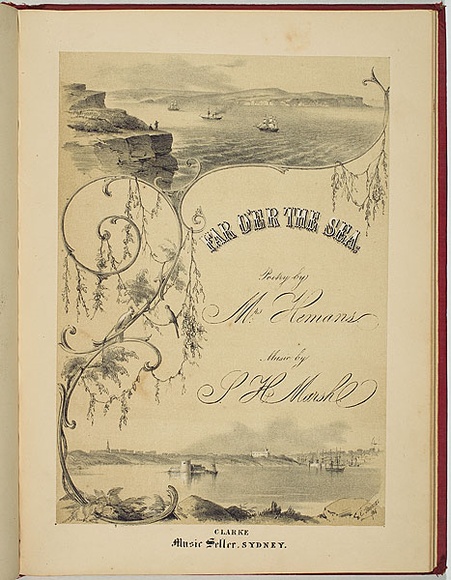 FAR O'ER THE SEA.
Poetry by
Mrs Hemans.
Music by
S H Marsh
CLARKE
Music Seller, SYDNEY.